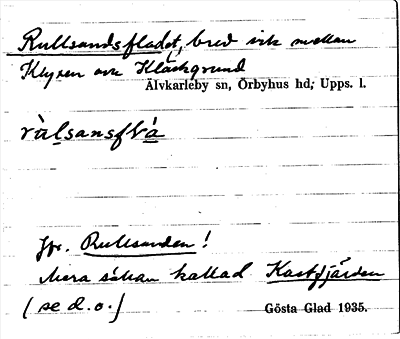 Rullsandsfladet, bred vik mellan
Klyxen och Kläckgrund
Älvkarleby sn, Örbyhus hd, Upps. l.
ràlsansflá
Jfr. Rullsanden!
Mera sällan kallad Kastfjärden
(se d.o.)
Gösta Glad 1935.